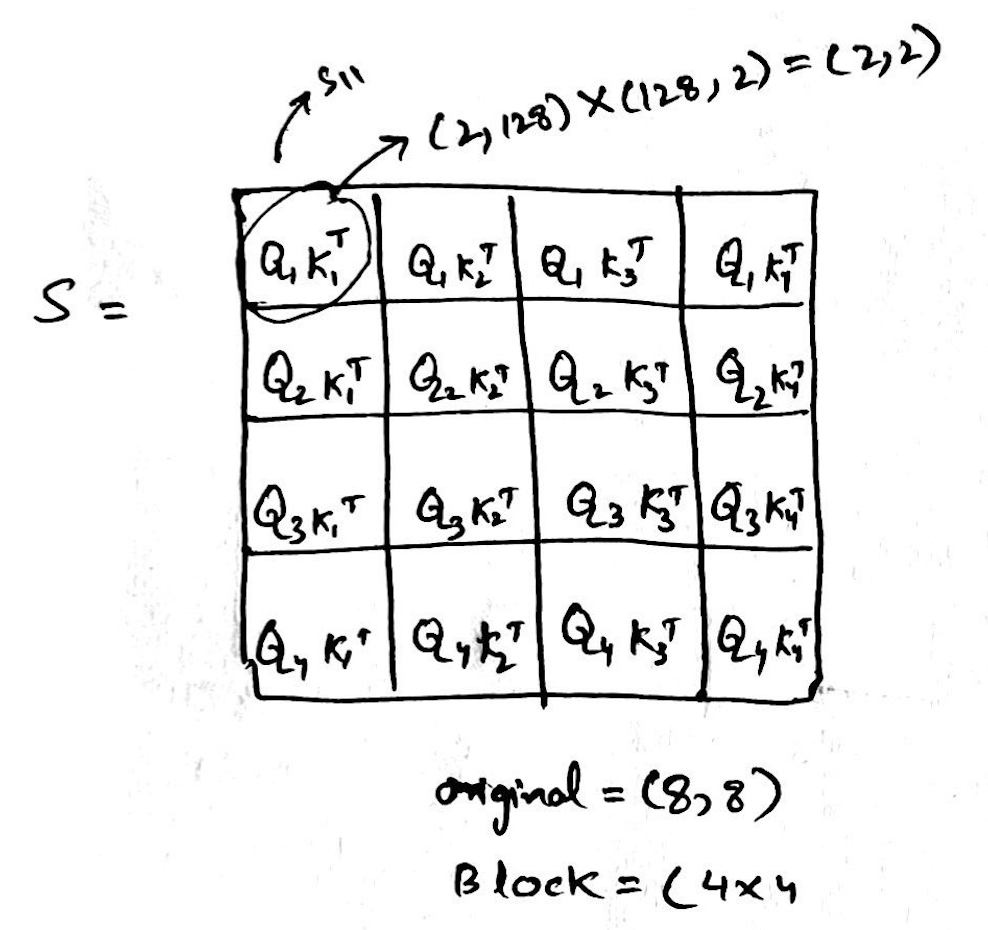 S11
(2,128) × (128,2) = (2,2)
S =
Q₁K₁ᵀ Q₁K₂ᵀ Q₁K₃ᵀ Q₁K₄ᵀ
Q₂K₁ᵀ Q₂K₂ᵀ Q₂K₃ᵀ Q₂K₄ᵀ
Q₃K₁ᵀ Q₃K₂ᵀ Q₃K₃ᵀ Q₃K₄ᵀ
Q₄K₁ᵀ Q₄K₂ᵀ Q₄K₃ᵀ Q₄K₄ᵀ
original = (8,8)
Block = (4×4